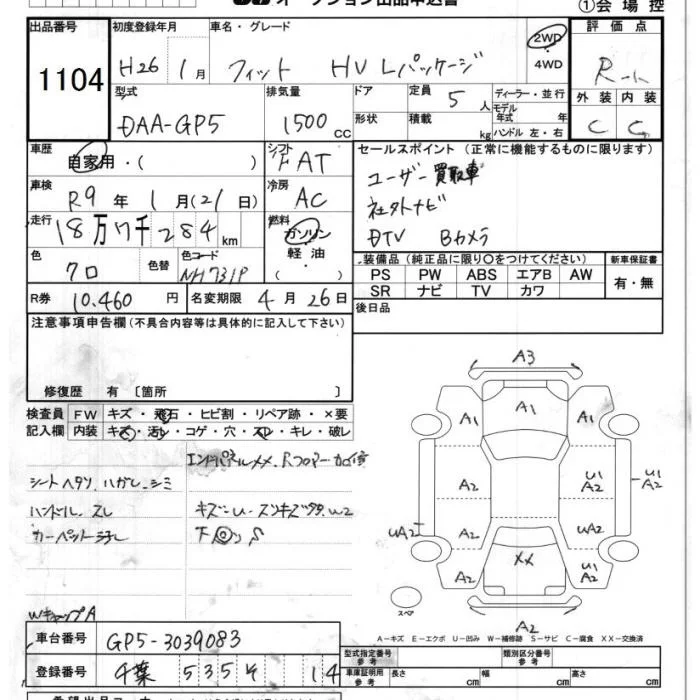 オークション出品申込書
①会場控
出品番号 初度登録年月 車名・グレード 評価点
1104 H26 1月 フィット HV Lパッケージ 2WD・4WD R-
型式 排気量 ドア 定員 5人 ディーラー・並行 外装 内装
DAA-GP5 1500cc 形状 積載 kg モデル年式 年 ハンドル 左・右 C C
車歴 シフト セールスポイント(正常に機能するものに限ります)
自家用・( ) FAT ユーザー買取車
車検 冷房
R9年1月(21日) AC 社外ナビ
走行 燃料
18万7千284km ガソリン DTV Bカメラ
軽油
( )
色 色替 色コード 装備品(純正品に限り〇をつけてください) 新車保証書
クロ NH731P PS PW ABS エアB AW 有・無
SR ナビ TV カワ
R券 10.460円 名変期限 4月26日 後日品
注意事項申告欄(不具合内容等は具体的に記入して下さい)
修復歴 有〔箇所 〕
検査員 FW キズ・飛石・ヒビ割・リペア跡・×要
記入欄 内装 キズ・汚レ・コゲ・穴・スレ・キレ・破レ
シートヘタリ.ハガレ.シミ
ハンドル.スレ
カーペット
WキャップA
A3
A1 A1 A1
A2 U1 A2 U1 A2
UA2 A2 UA2
A2 XX U1 A2
スペア
A2
A-キズ E-エクボ U-凹み W-補修跡 S-サビ C-腐食 XX-交換済
車台番号 GP5-3039083
登録番号 千葉 535 そ 14
型式指定番号 参考 類別区分番号 参考
車庫証明用 参考 長さ cm 幅 cm 高さ cm